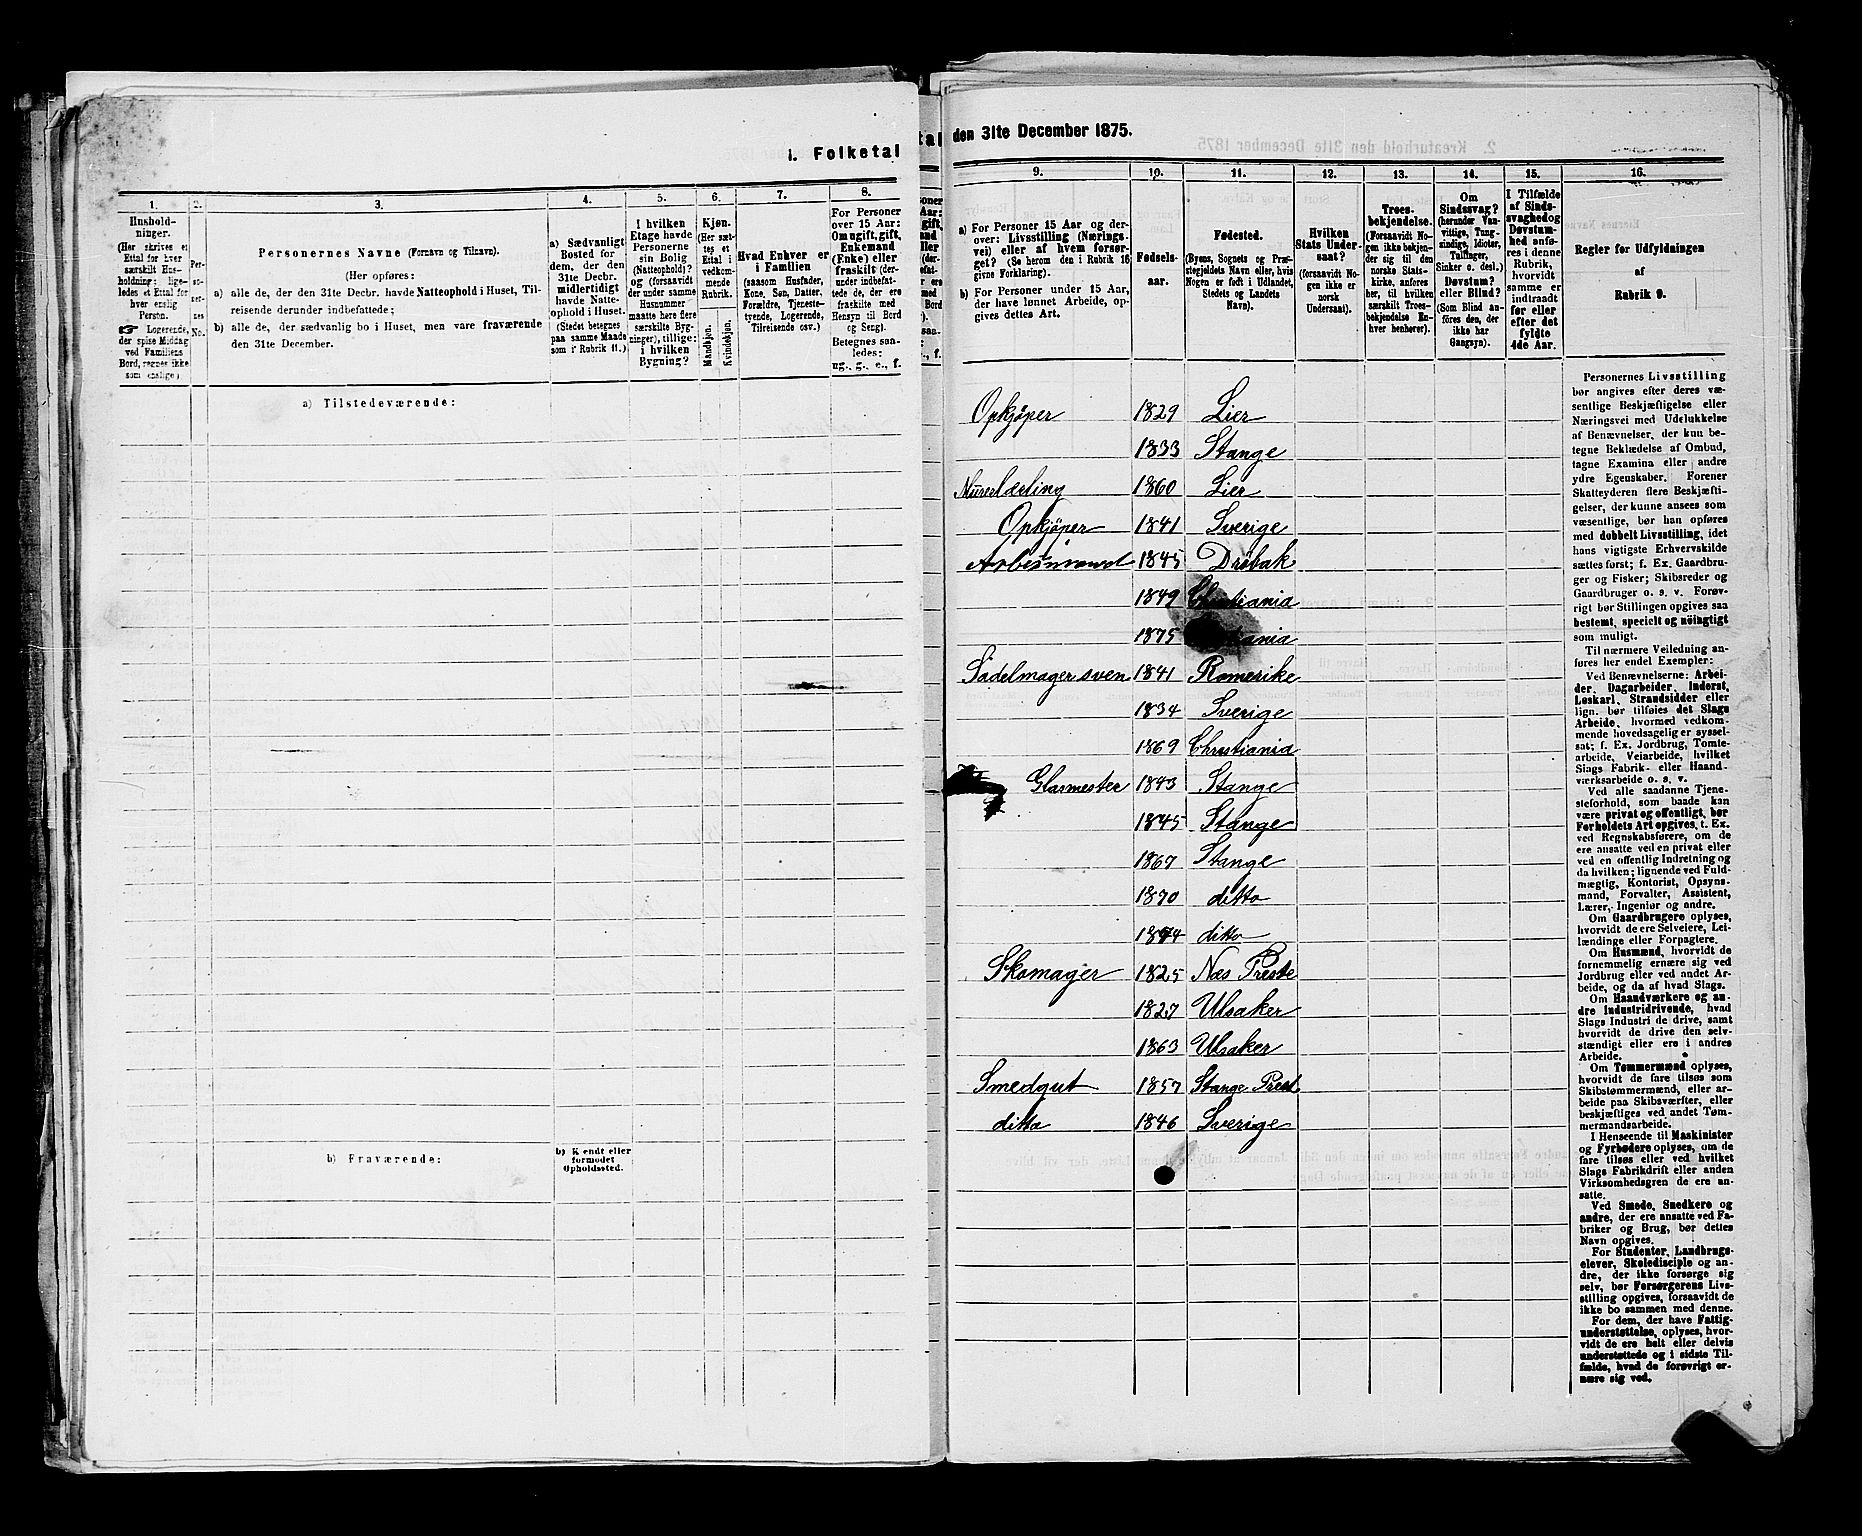 1. Folketal
1. 2. 3. 4. 5. 6. 7. 8.
Hushold-
ninger.
(Her skrives et
Ettal for hver
særskilt Hus-
holdning; lige-
ledes et Ettal for
hver enslig
Person.
☞ Logerende,
der spise Middag
ved Familiens
Bord, regnes ikke
som enslige)
Personernes Navne (Fornavn og Tilnavn).
(Her opføres:
a) alle de, der den 31te Decbr. havde Natteophold i Huset, Til-
reisende derunder indbefattede;
b) alle de, der sædvanlig bo i Huset, men vare fraværende
den 31te December.
a) Sædvanligt
Bosted for
dem, der den
31te Decbr.
midlertidigt
havde Natte-
ophold i Huset.
(Stedet betegnes
paa samme Maade
som i Rubrik 11.)
I hvilken
Etage havde
Personerne
sin Bolig
(Natteophold)?
og (forsaavidt
der under samme
Husnummer
maatte høre flere
særskilte Byg-
ninger), tillige:
i hvilken
Bygning?
Kjøn.
(Her sæt-
tes et
Ettal i
vedkom-
mende
Rubrik.
Mandkjøn.
Kvindekjøn.
Hvad Enhver er
i Familien
(saasom Husfader,
Kone, Søn, Datter,
Forældre, Tjeneste-
tyende, Logerende,
Tilreisende osv.)
For Personer
over 15 Aar:
Om ugift, gift,
Enkemand
(Enke) eller
fraskilt (der-
under indbefat-
tede de, der ere
fraskilte med
Hensyn til Bord
og Seng).
Betegnes saa-
ledes:
ug., g., e., f.
a) Tilstedeværende:
b) Fraværende:
b) Kjendt eller
formodet
Opholdssted.
den 31te December 1875.
9. 10. 11. 12. 13. 14. 15. 16.
a) For Personer 15 Aar og der-
over: Livsstilling (Nærings-
vei) eller af hvem forsør-
get? (Se herom den i Rubrik 16
givne Forklaring).
b) For Personer under 15 Aar,
der have lønnet Arbeide, op-
gives dettes Art.
Fødsels-
aar.
Fødested.
(Byens, Sognets og Præ-
stegjeldets Navn eller, hvis
Nogen er født i Udlandet,
Stedets og Landets
Navn).
Hvilken
Stats Under-
saat?
(forsaavidt No-
gen ikke er
norsk
Undersaat).
Troes-
bekjendelse.
(Forsaavidt No-
gen ikke bekjen-
der sig til den
norske Stats-
kirke, anføres
her, til hvilken
særskilt Troes-
bekjendelse En-
hver henhører).
Om
Sindssvag?
(herunder Van-
vittige, Tung-
sindige, Idioter,
Tullinger,
Sinker o. desl.)
Døvstum?
eller Blind?
(Som Blind an-
føres den, der
ikke har
Gangsyn).
I Tilfælde
af Sinds-
svaghed og
Døvstum-
hed anfø-
res i denne
Rubrik,
hvorvidt
samme er
indtraadt
før eller
efter det
fyldte
4de Aar.
Regler for Udfyldningen
af
Rubrik 9.
Opkjøper 1829 Lier
1833 Stange
Murerlærling 1860 Lier
Opkjøper 1841 Sverige
Arbeismand 1845 Drøbak
1849 Christiania
1875
Sadelmagersven 1841 Romerike
1834 Sverige
1869 Christiania
Glasmester 1843 Stange
1845 Stange
1867 Stange
1870 ditto
1874 ditto
Skomager 1825 Næs Preste
1827 Ulsaker
1863 Ulsaker
Smedgut 1857 Stange Prest
ditto 1846 Sverige
Personernes Livsstilling
bør angives efter deres væ-
sentlige Beskjæftigelse eller
Næringsvei med Udelukkelse
af Benævnelser, der kun be-
tegne Beklædelse af Ombud,
tagne Examina eller andre
ydre Egenskaber. Forener
Skatteyderen flere Beskjæfti-
gelser, der kunne ansees som
væsentlige, bør han opføres
med dobbelt Livsstilling, idet
hans vigtigste Erhvervskilde
sættes først; f. Ex. Gaardbru-
ger og Fisker; Skibsreder og
Gaardbruger o. s. v. Forøv-
rigt bør Stillingen opgives saa
bestemt, specielt og nöiagtigt
som muligt.
Til nærmere Veiledning an-
føres her endel Exempler:
Ved Benævnelserne: Arbei-
der, Dagarbeider, Inderst,
Løskarl, Strandsidder eller
lign. bør tilføies det Slags
Arbeide, hvormed vedkom-
mende hovedsagelig er syssel-
sat; f. Ex. Jordbrug, Tomte-
arbeide, Veiarbeide, hvilket
Slags Fabrik- eller Haand-
værksarbeide o. s. v.
Ved alle saadanne Tjene-
steforhold, som baade kan
være privat og offentligt, bør
Forholdets Art opgives, t. Ex.
ved Regnskabsførere, om de
ere ansatte ved en privat eller
ved en offentlig Indretning og
da hvilken; lignende ved Fuld-
mægtig, Kontorist, Opsyns-
mand, Forvalter, Assistent,
Lærer, Ingeniør og andre.
Om Gaardbrugere oplyses,
hvorvidt de ere Selveiere, Lei-
lændinge eller Forpagtere.
Om Husmænd, hvorvidt de
fornemmelig ernære sig ved
Jordbrug eller ved andet Ar-
beide, og da af hvad Slags.
Om Haandværkere og an-
dre Industridrivende, hvad
Slags Industri de drive, samt
hvorvidt de drive den selv-
stændigt eller ere i andres
Arbeide.
Om Tømmermænd oplyses,
hvorvidt de fare tilsøs som
Skibstømmermænd, eller ar-
beide paa Skibsværfter, eller
beskjæftiges ved andet Tøm-
mermandsarbeide.
I Henseende til Maskinister
og Fyrbødere oplyses, om de
fare tilsøs eller ved hvilket
Slags Fabrikdrift eller anden
Virksomhedsgren de ere an-
satte.
Ved Smede, Snedkere og
andre, der ere ansatte ved Fa-
briker og Brug, bør dettes
Navn opgives.
For Studenter, Landbrugs-
elever, Skoledisciple og an-
dre, der ikke forsørge sig
selv, bør Forsørgerens Livs-
stilling opgives, forsaavidt de
ikke bo sammen med denne.
For dem, der have Fattig-
understøttelse, oplyses, hvor-
vidt de ere helt eller delvis
understøttede og i sidste Til-
fælde, hvad de forøvrigt er-
nære sig ved.